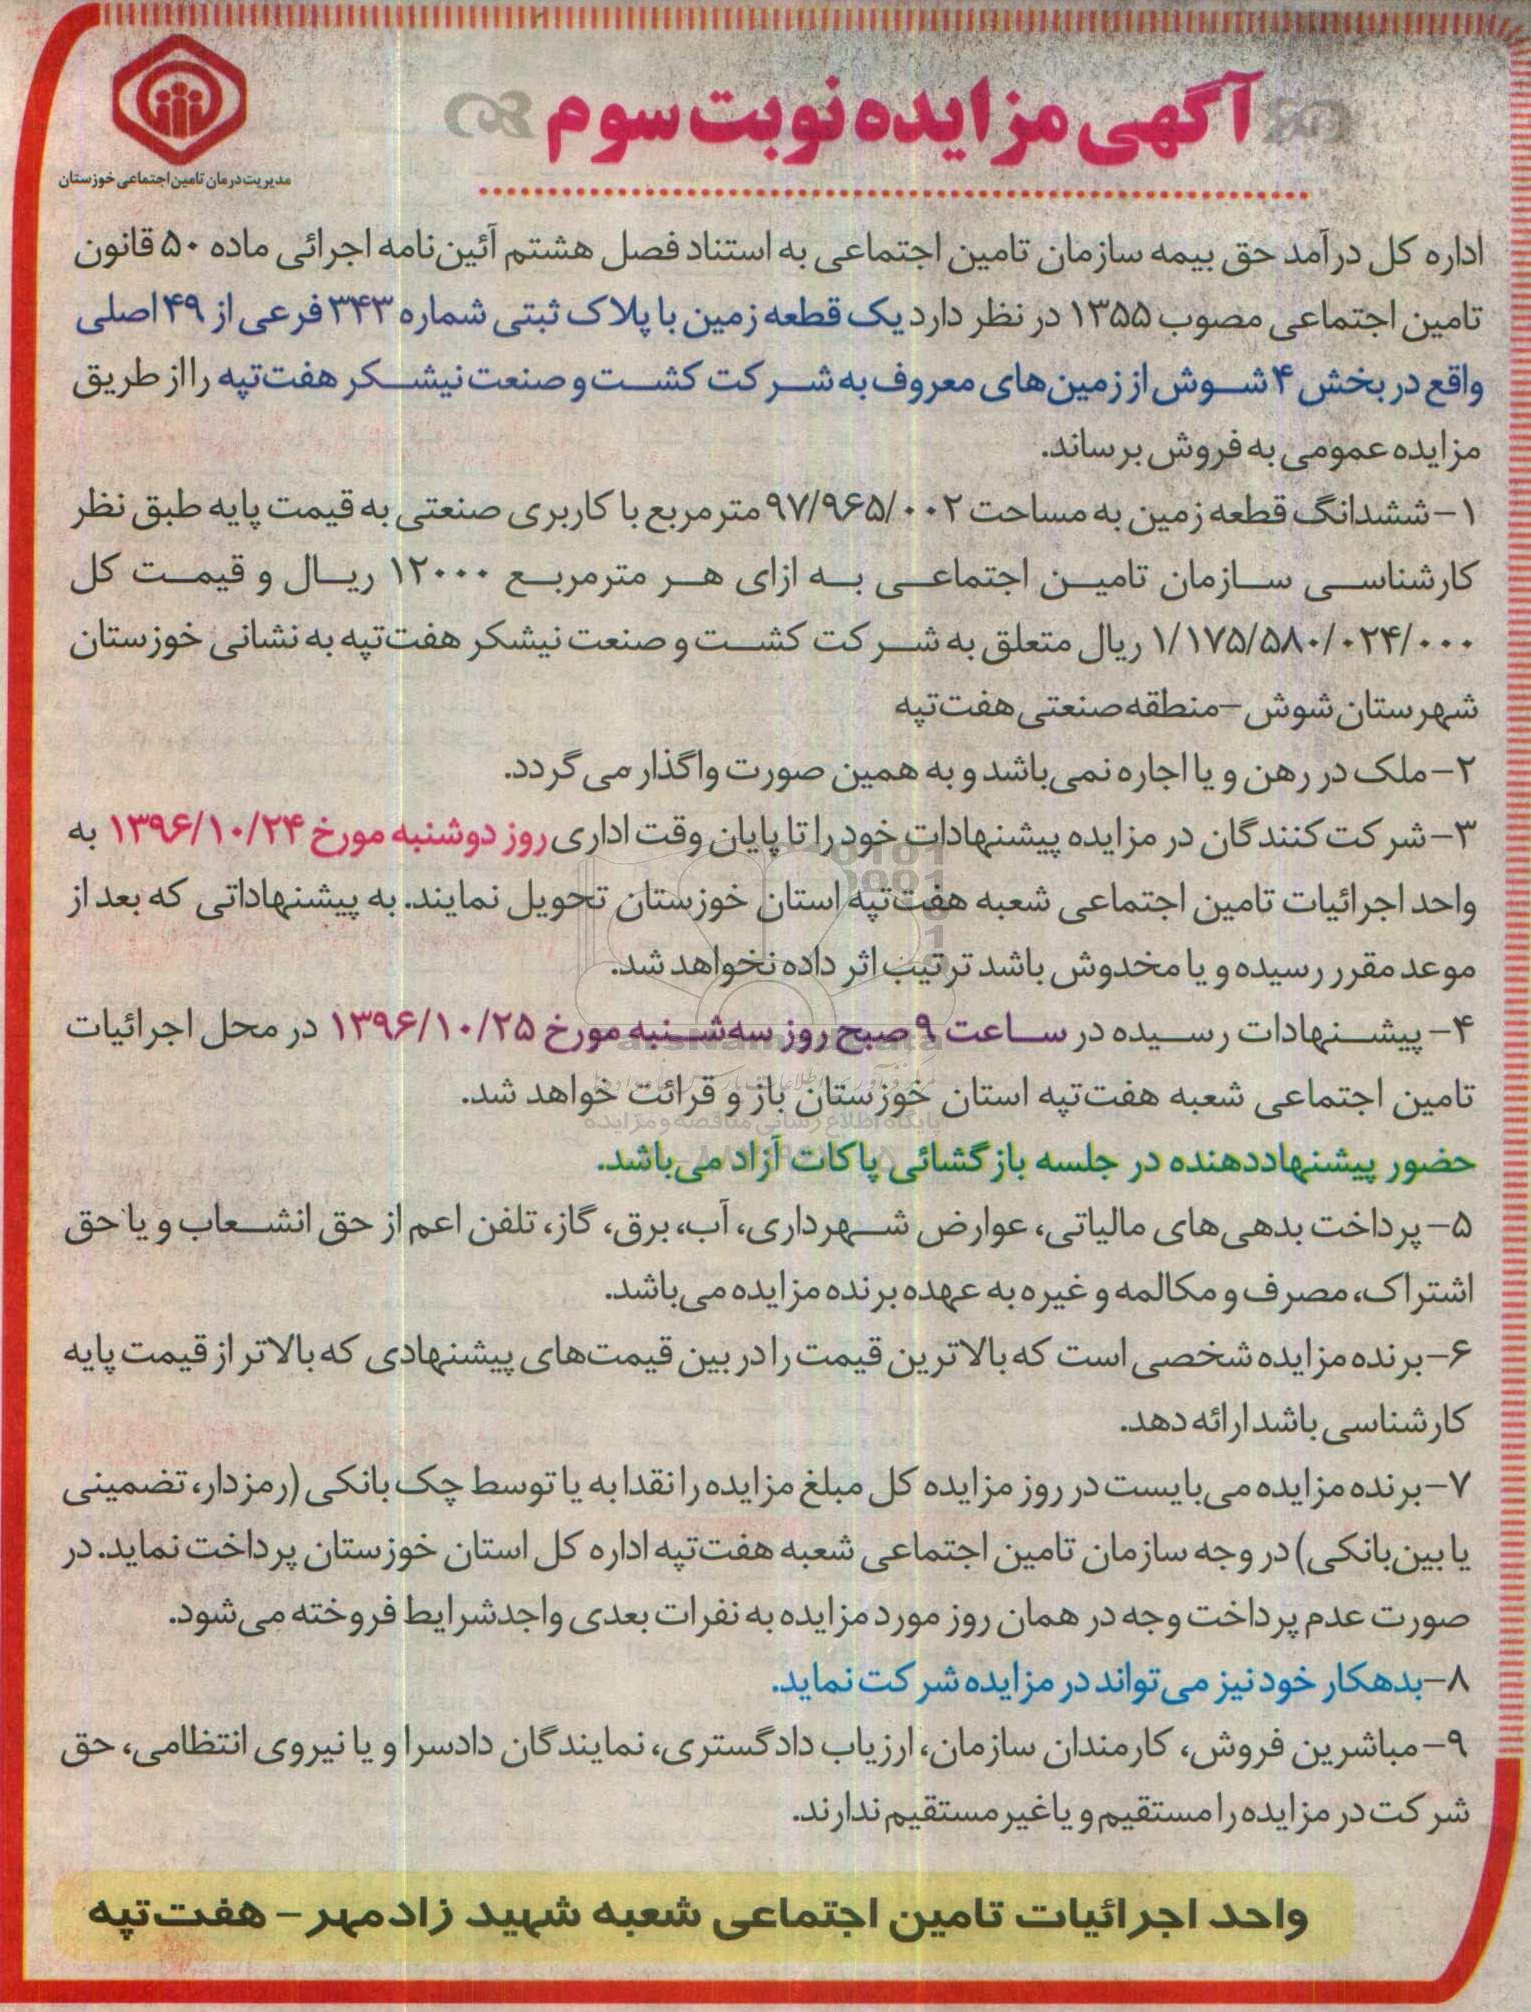 آگهی مزایده نوبت سوم
مدیریت درمان تامین اجتماعی خوزستان
اداره کل درآمد حق بیمه سازمان تامین اجتماعی به استناد فصل هشتم آئین‌نامه اجرائی ماده ۵۰ قانون
تامین اجتماعی مصوب ۱۳۵۵ در نظر دارد یک قطعه زمین با پلاک ثبتی شماره ۳۴۳ فرعی از ۴۹ اصلی
واقع در بخش ۴ شوش از زمین‌های معروف به شرکت کشت و صنعت نیشکر هفت‌تپه را از طریق
مزایده عمومی به فروش برساند.
۱- ششدانگ قطعه زمین به مساحت ۹۷/۹۶۵/۰۰۲ متر مربع با کاربری صنعتی به قیمت پایه طبق نظر
کارشناسی سازمان تامین اجتماعی به ازای هر مترمربع ۱۲۰۰۰ ریال و قیمت کل
۱/۱۷۵/۵۸۰/۰۲۴/۰۰۰ ریال متعلق به شرکت کشت و صنعت نیشکر هفت‌تپه به نشانی خوزستان
شهرستان شوش - منطقه صنعتی هفت‌تپه
۲- ملک در رهن و یا اجاره نمی‌باشد و به همین صورت واگذار می گردد.
۳- شرکت کنندگان در مزایده پیشنهادات خود را تا پایان وقت اداری روز دوشنبه مورخ ۱۳۹۶/۱۰/۲۴ به
واحد اجرائیات تامین اجتماعی شعبه هفت‌تپه استان خوزستان تحویل نمایند. به پیشنهاداتی که بعد از
موعد مقرر رسیده و یا مخدوش باشد ترتیب اثر داده نخواهد شد.
۴- پیشنهادات رسیده در ساعت ۹ صبح روز سه‌شنبه مورخ ۱۳۹۶/۱۰/۲۵ در محل اجرائیات
تامین اجتماعی شعبه هفت‌تپه استان خوزستان باز و قرائت خواهد شد.
پایگاه اطلاع رسانی مناقصه و مزایده
حضور پیشنهاددهنده در جلسه بازگشائی پاکات آزاد می‌باشد.
۵- پرداخت بدهی‌های مالیاتی، عوارض شهرداری، آب، برق، گاز، تلفن اعم از حق انشعاب و یا حق
اشتراک، مصرف و مکالمه و غیره به عهده برنده مزایده می‌باشد.
۶- برنده مزایده شخصی است که بالاترین قیمت را در بین قیمت‌های پیشنهادی که بالاتر از قیمت پایه
کارشناسی باشد ارائه دهد.
۷- برنده مزایده می‌بایست در روز مزایده کل مبلغ مزایده را نقدا به یا توسط چک بانکی (رمزدار، تضمینی
یا بین‌بانکی) در وجه سازمان تامین اجتماعی شعبه هفت‌تپه اداره کل استان خوزستان پرداخت نماید. در
صورت عدم پرداخت وجه در همان روز مورد مزایده به نفرات بعدی واجدشرایط فروخته می‌شود.
۸- بدهکار خود نیز می‌تواند در مزایده شرکت نماید.
۹- مباشرین فروش، کارمندان سازمان، ارزیاب دادگستری، نمایندگان دادسرا و یا نیروی انتظامی، حق
شرکت در مزایده را مستقیم و یا غیر مستقیم ندارند.
واحد اجرائیات تامین اجتماعی شعبه شهید زادمهر - هفت‌تپه